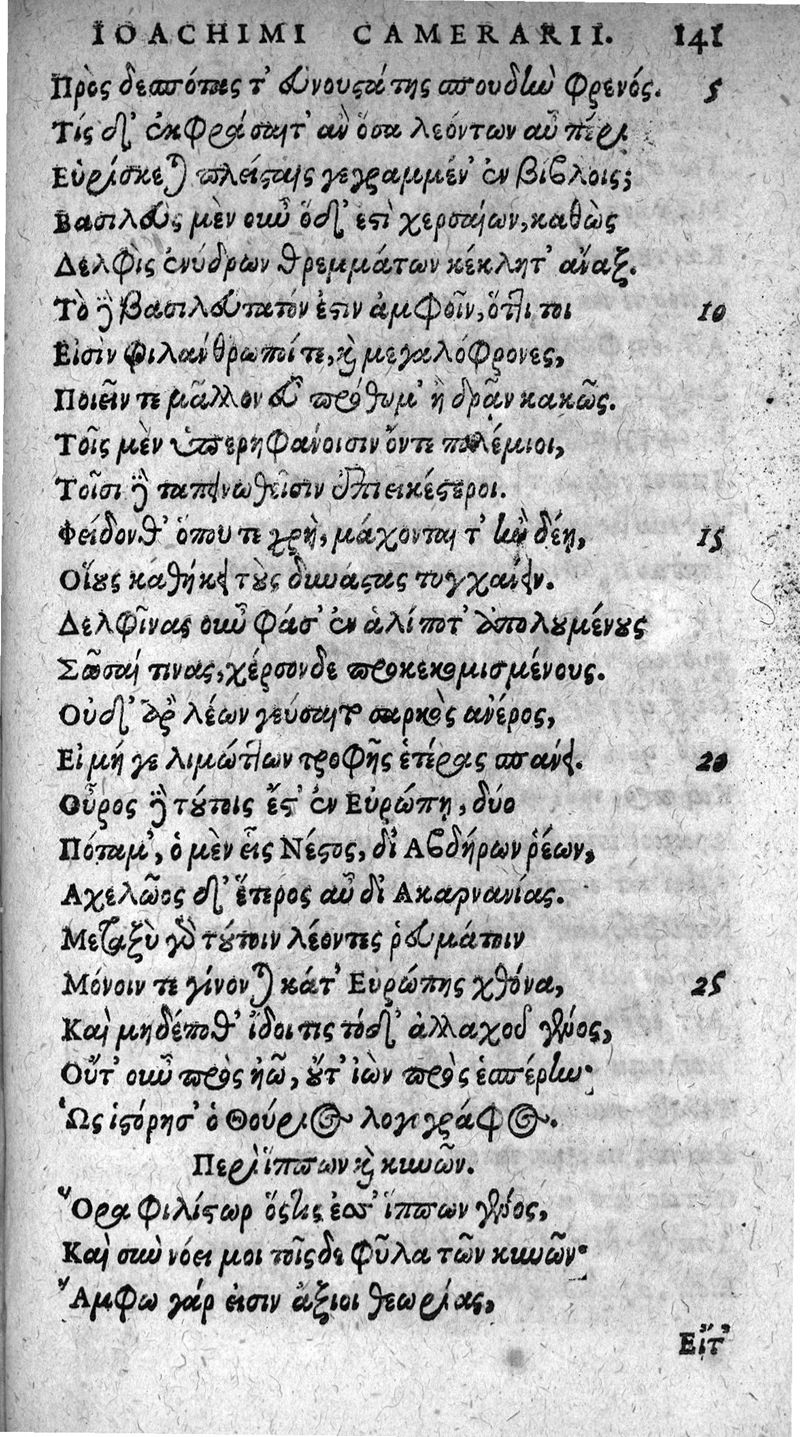 IOACHIMI CAMERARII. 141
Πρὸς δεσπότας τ' εὐνουςάτης σπουδὴν φρενός. 5
Τίς δ' ἐκφράσαιτ' ἂν ὅσα λεόντων αὖ πέρι
Εὑρίσκεται πλείςαις γεγραμμέν' ἐν βίβλοις;
Βασιλεὺς μὲν οὖν ὅδ' ἐςὶ χερσαίων, καθὼς
Δελφὶς ἐνύδρων θρεμμάτων κέκλητ' ἄναξ.
Τὸ δὲ βασιλεύτατόν ἐςιν ἀμφοῖν, ὅτι τοι 10
Εἰσὶν φιλάνθρωποί τε, καὶ μεγαλόφρονες,
Ποιεῖν τε μᾶλλον εὖ πρόθυμ' ἢ δρᾶν κακῶς.
Τοῖς μὲν ὑπερηφάνοισιν ὄντε πολέμιοι,
Τοῖσι δὲ ταπεινωθεῖσιν ἐπιεικέςεροι.
Φείδονθ' ὅπου τε χρὴ, μάχονται τ' ἢν δέῃ, 15
Οἵους καθήκει τοὺς δυνάςας τυγχαίνειν.
Δελφῖνας οὖν φάσ' ἐν ἁλί ποτ' ἀπολουμένους
Σῶσαί τινας, χέρσονδε προκεκομισμένους.
Οὐδ' ἂρ λέων γεύσαιτο σαρκὸς ἀνέρος,
Εἰ μή γε λιμώττων τροφῆς ἑτέρας σπάνει. 20
Οὖρος δὲ τούτοις ἔς' ἐν Εὐρώπῃ, δύο
Πόταμ', ὁ μὲν εἷς Νέςος, δι' Ἀβδήρων ῥέων,
Ἀχελῶος δ' ἕτερος αὖ δι' Ἀκαρνανίας.
Μεταξὺ γὰρ τούτοιν λέοντες ῥευμάτοιν
Μόνοιν τε γίνονται κάτ' Εὐρώπης χθόνα, 25
Καὶ μηδέποθ' ἴδοι τις τόδ' ἀλλαχοῦ γένος,
Οὔτ' οὖν πρὸς ἠῶ, οὔτ' ἰὼν πρὸς ἑσπέρην·
Ὡς ἱςόρησ' ὁ Θούριος λογιγράφος.
Περὶ ἵππων καὶ κυνῶν.
Ὅρα φιλίςωρ ὅςις ἐσθ' ἵππων γένος,
Καὶ σὺν νόει μοι τοῖςδε φῦλα τῶν κυνῶν·
Ἄμφω γάρ εἰσιν ἄξιοι θεωρίας,
Εἴτ'